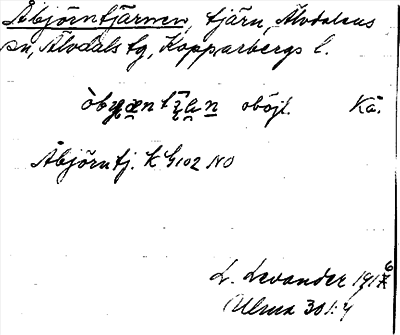 Åbjörntjärnen, tjärn, Älvdalens
sn, Älvdals tg, Kopparbergs l.
oböjl. Kå.
Åbjörntj. k G102 NO
L. Levander 1916
Ulma 301:4